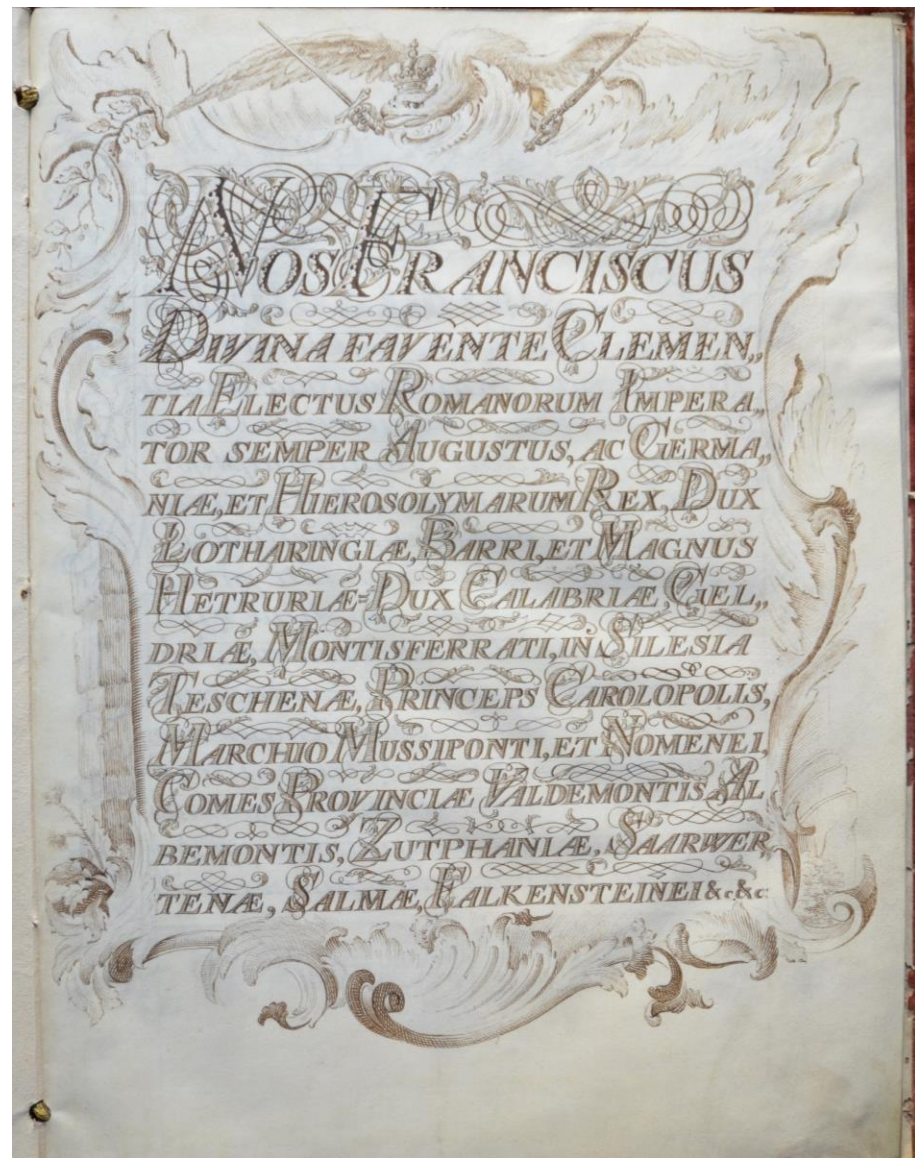 NOS FRANCISCUS
DIVINA FAVENTE CLEMEN„
TIA ELECTUS ROMANORUM IMPERA„
TOR SEMPER AUGUSTUS, AC GERMA„
NIÆ, ET HIEROSOLYMARUM REX, DUX
LOTHARINGIÆ, BARRI, ET MAGNUS
HETRURIÆ=DUX CALABRIÆ, GEL„
DRIÆ, MONTISFERRATI, IN SILESIA
TESCHENÆ, PRINCEPS CAROLOPOLIS,
MARCHIO MUSSIPONTI, ET NOMENEI,
COMES PROVINCIÆ VALDEMONTIS, AL
BEMONTIS, ZUTPHANIÆ, SAARWER„
TENÆ, SALMÆ, FALKENSTEINEI &c. &c: